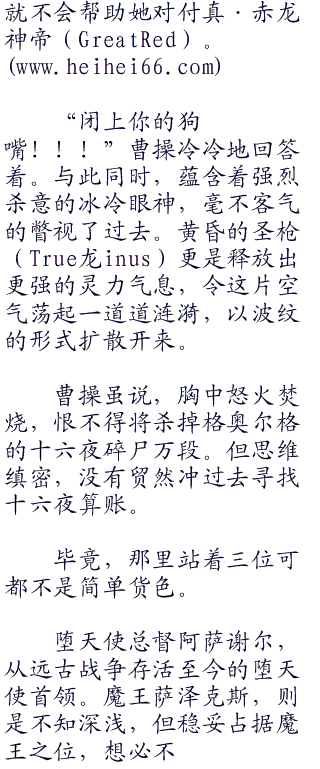 就不会帮助她对付真·赤龙
神帝（GreatRed）。
(www.heihei66.com)
“闭上你的狗
嘴！！！”曹操冷冷地回答
着。与此同时，蕴含着强烈
杀意的冰冷眼神，毫不客气
的瞥视了过去。黄昏的圣枪
（True龙inus）更是释放出
更强的灵力气息，令这片空
气荡起一道道涟漪，以波纹
的形式扩散开来。
曹操虽说，胸中怒火焚
烧，恨不得将杀掉格奥尔格
的十六夜碎尸万段。但思维
缜密，没有贸然冲过去寻找
十六夜算账。
毕竟，那里站着三位可
都不是简单货色。
堕天使总督阿萨谢尔，
从远古战争存活至今的堕天
使首领。魔王萨泽克斯，则
是不知深浅，但稳妥占据魔
王之位，想必不